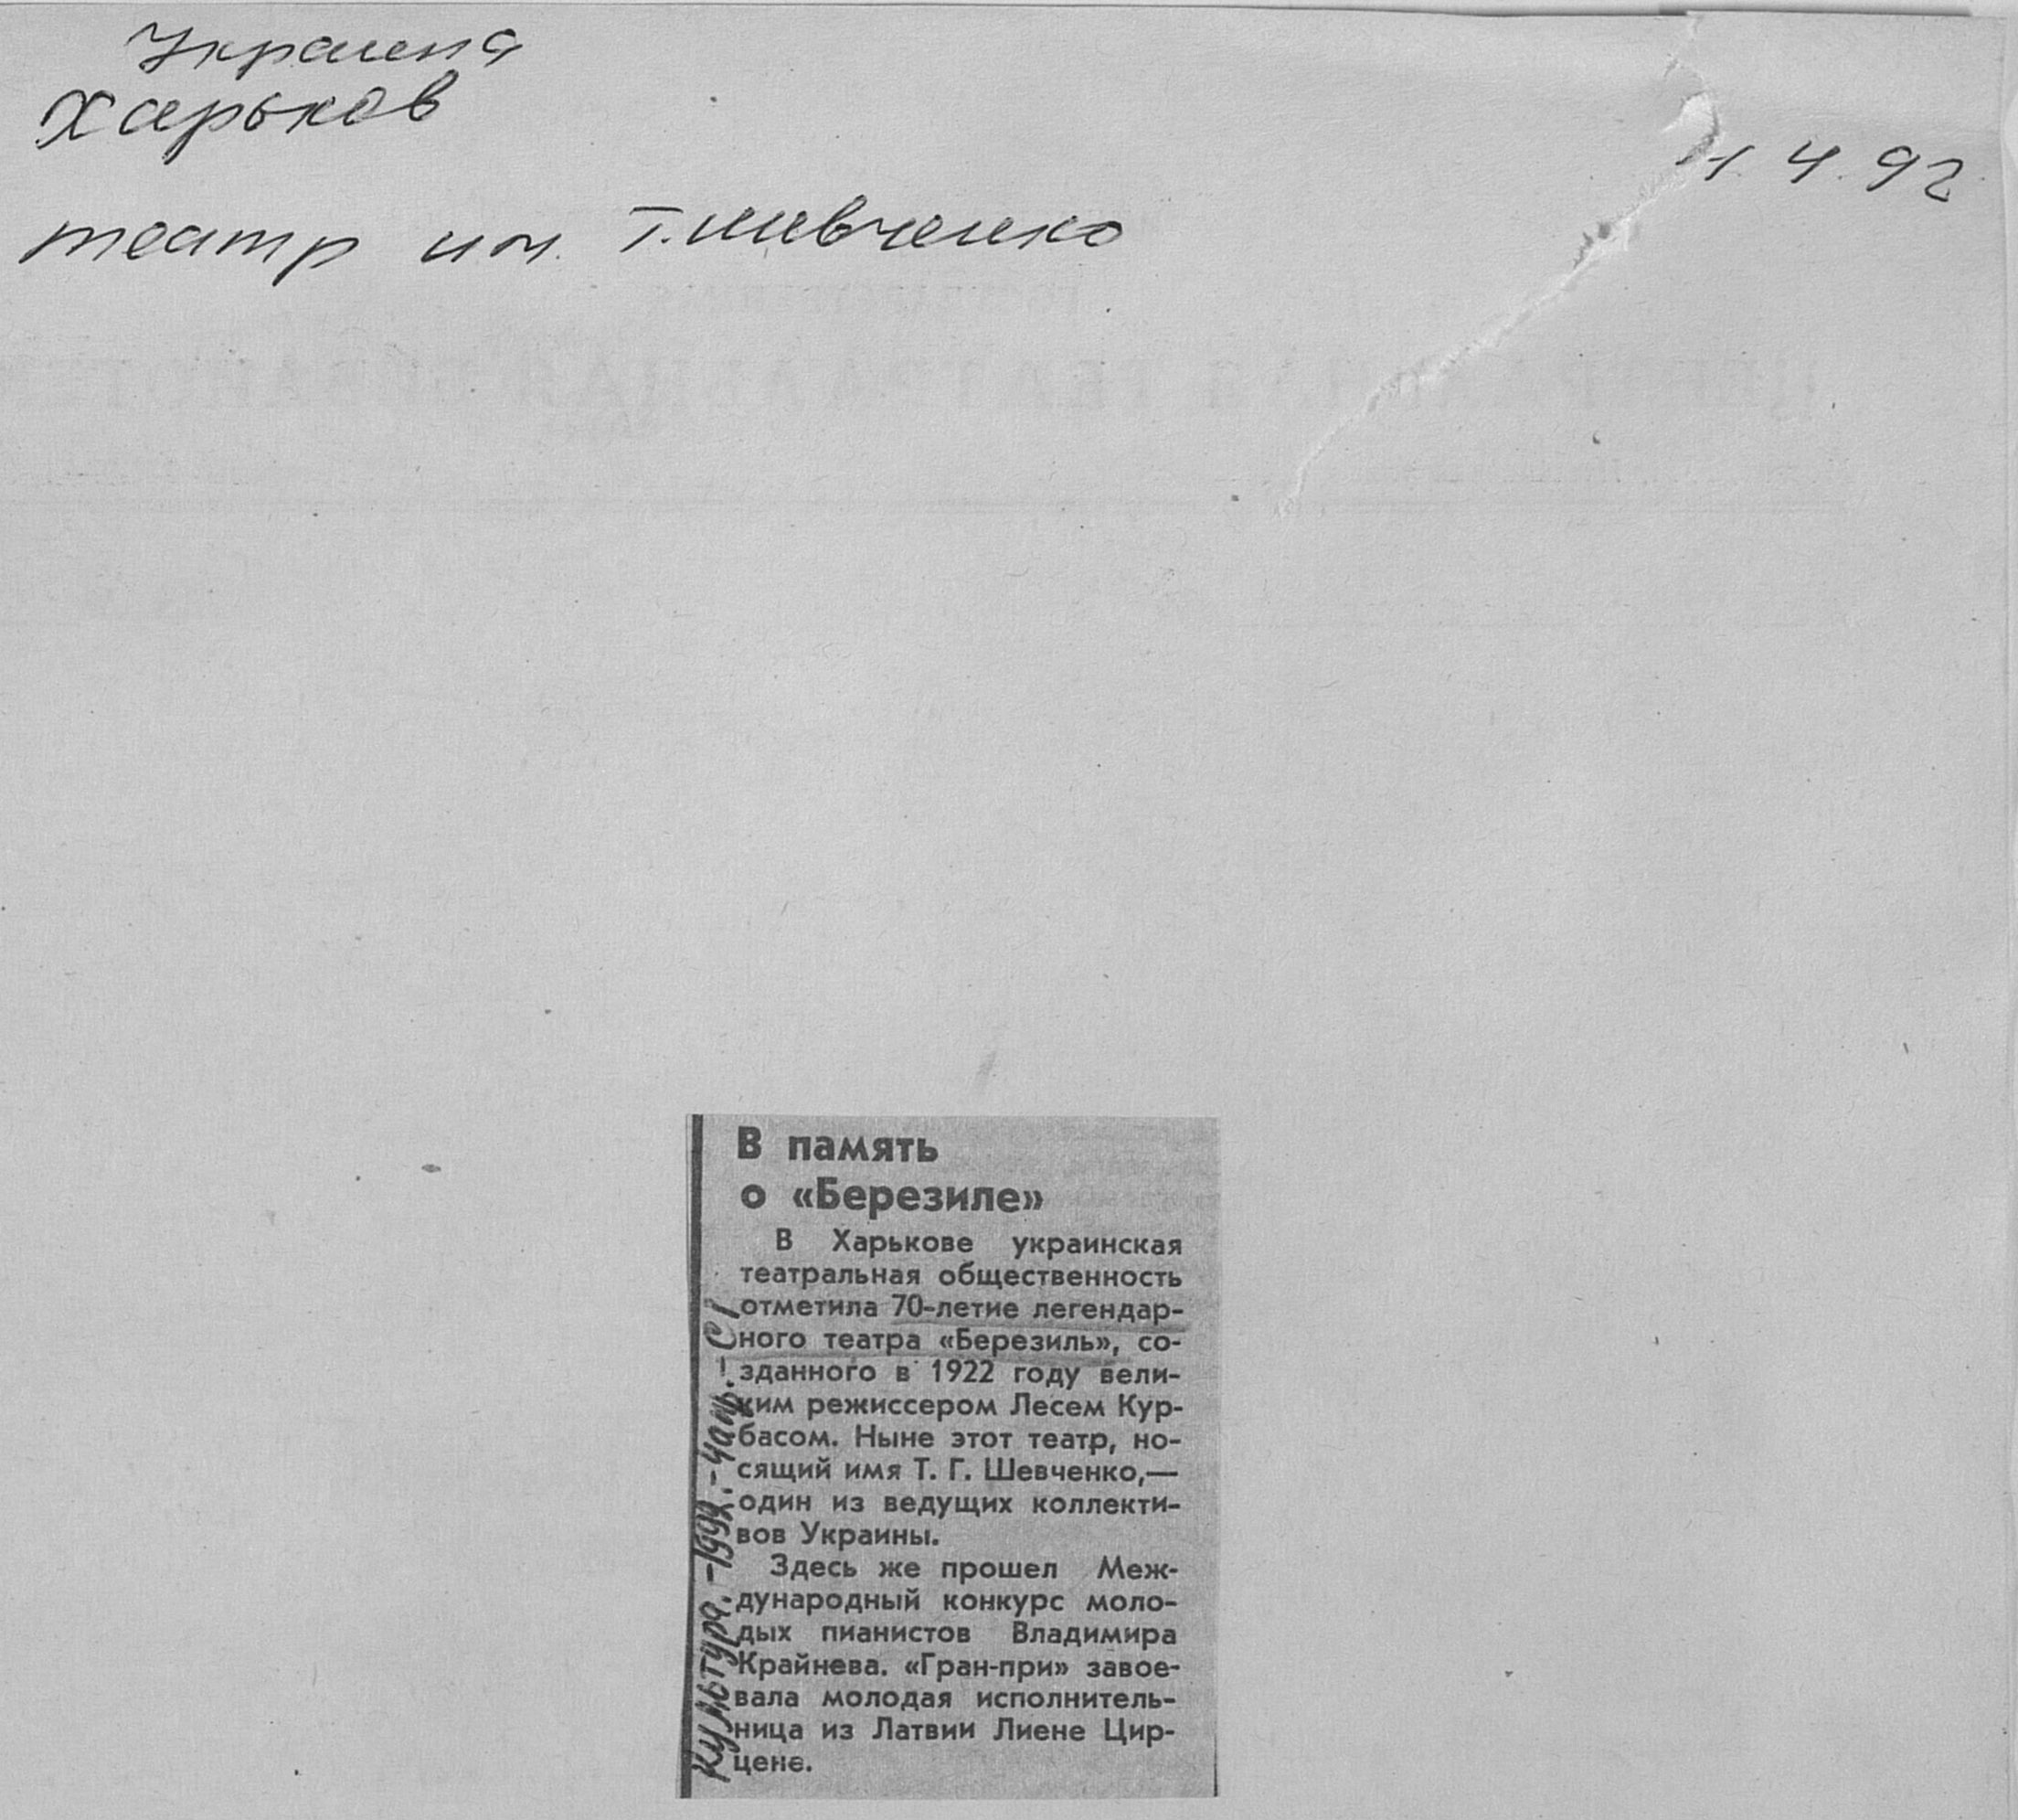 Украина
Харьков
1.4.92
театр им. Т. Шевченко
В память
о «Березиле»
В Харькове украинская
театральная общественность
отметила 70-летие легендар-
ного театра «Березиль», со-
зданного в 1922 году вели-
ким режиссером Лесем Кур-
басом. Ныне этот театр, но-
сящий имя Т. Г. Шевченко,—
один из ведущих коллекти-
вов Украины.
Здесь же прошел Меж-
дународный конкурс моло-
дых пианистов Владимира
Крайнева. «Гран-при» завое-
вала молодая исполнитель-
ница из Латвии Лиене Цир-
цене.
Культура.-1992.-4апр.-С1